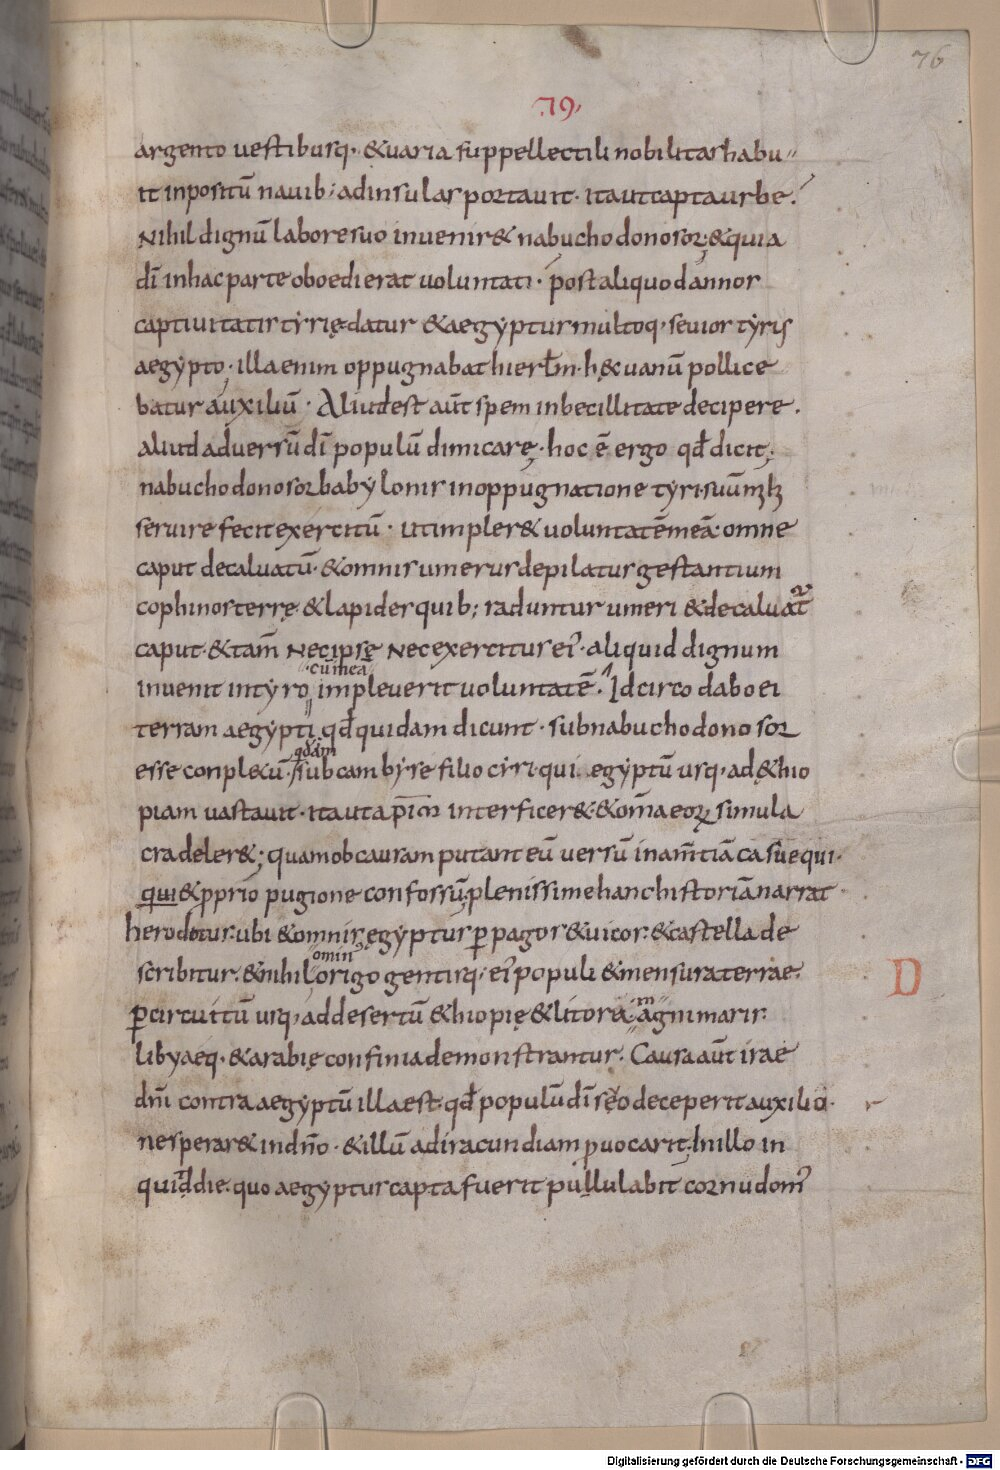 76
79
argento uestibusq· &uaria suppellectili nobilitas habu
it inpositū nauib; adinsulas portauit· itautcaptaurbe·
Nihil dignū laboresuo inuenir& nabuchodonosor; &quia
dī inhacparte oboedierat uoluntati· postaliquodannos
captiuitatis tyrię datur &aegyptus multoq· seuior tyris
aegypto· illaenim oppugnabat hierłm· hęc uanū pollice
batur auxiliū· Aliud est aūt spem inbecillitate decipere·
aliud aduersū dī populū dimicarę· hoc ē ergo qđ dicit;
nabuchodonosor babylonis inoppugnatione tyri suū
seruire fecit exercitū· ut impler& uoluntatē meā· omne
caput decaluatū· &omnis umerus depilatus gestantium
cophinos terrę &lapides quib; raduntur umeri &decaluat
caput· &tam̄ Necipsę Necexercitus ei· aliquid dignum
cū meā
inuenit intyro impleuerit uoluntatē· Idcirco dabo ei
terram aegypti qđ quidam dicunt· subnabuchodonosor
qdām
esse conpl&ū· sub cambyse filio cyri· qui egyptū usq· ad &hio
piam uastauit· itauta interficer&· &om̄a eoꝝ simula
cra deler&; quam ob causam putant eū uersū inam̄tiā casu equi·
qui &pprio pugione confossū; plenissime hanc historiā narrat
herodotus· ubi &omnis ęgyptus ꝑ pagos &uicos· &castella de
omin
scribitur· &nihil origo gentisq· ei populi &mensura terrae·
ꝑcircuitū usq· ad desertū &hiopię &litora magni maris·
libyaeq· &arabię confinia demonstrantur· Causa aūt irae
D
dn̄i contra aegyptū illa est· qđ populū dī sęo deceperit auxilio·
ne sperar& in dn̄o· &illū ad iracundiam ꝓuocarit· Inillo in
quid die· quo aegyptus capta fuerit pullulabit cornu dom
Digitalisierung gefördert durch die Deutsche Forschungsgemeinschaft - DFG